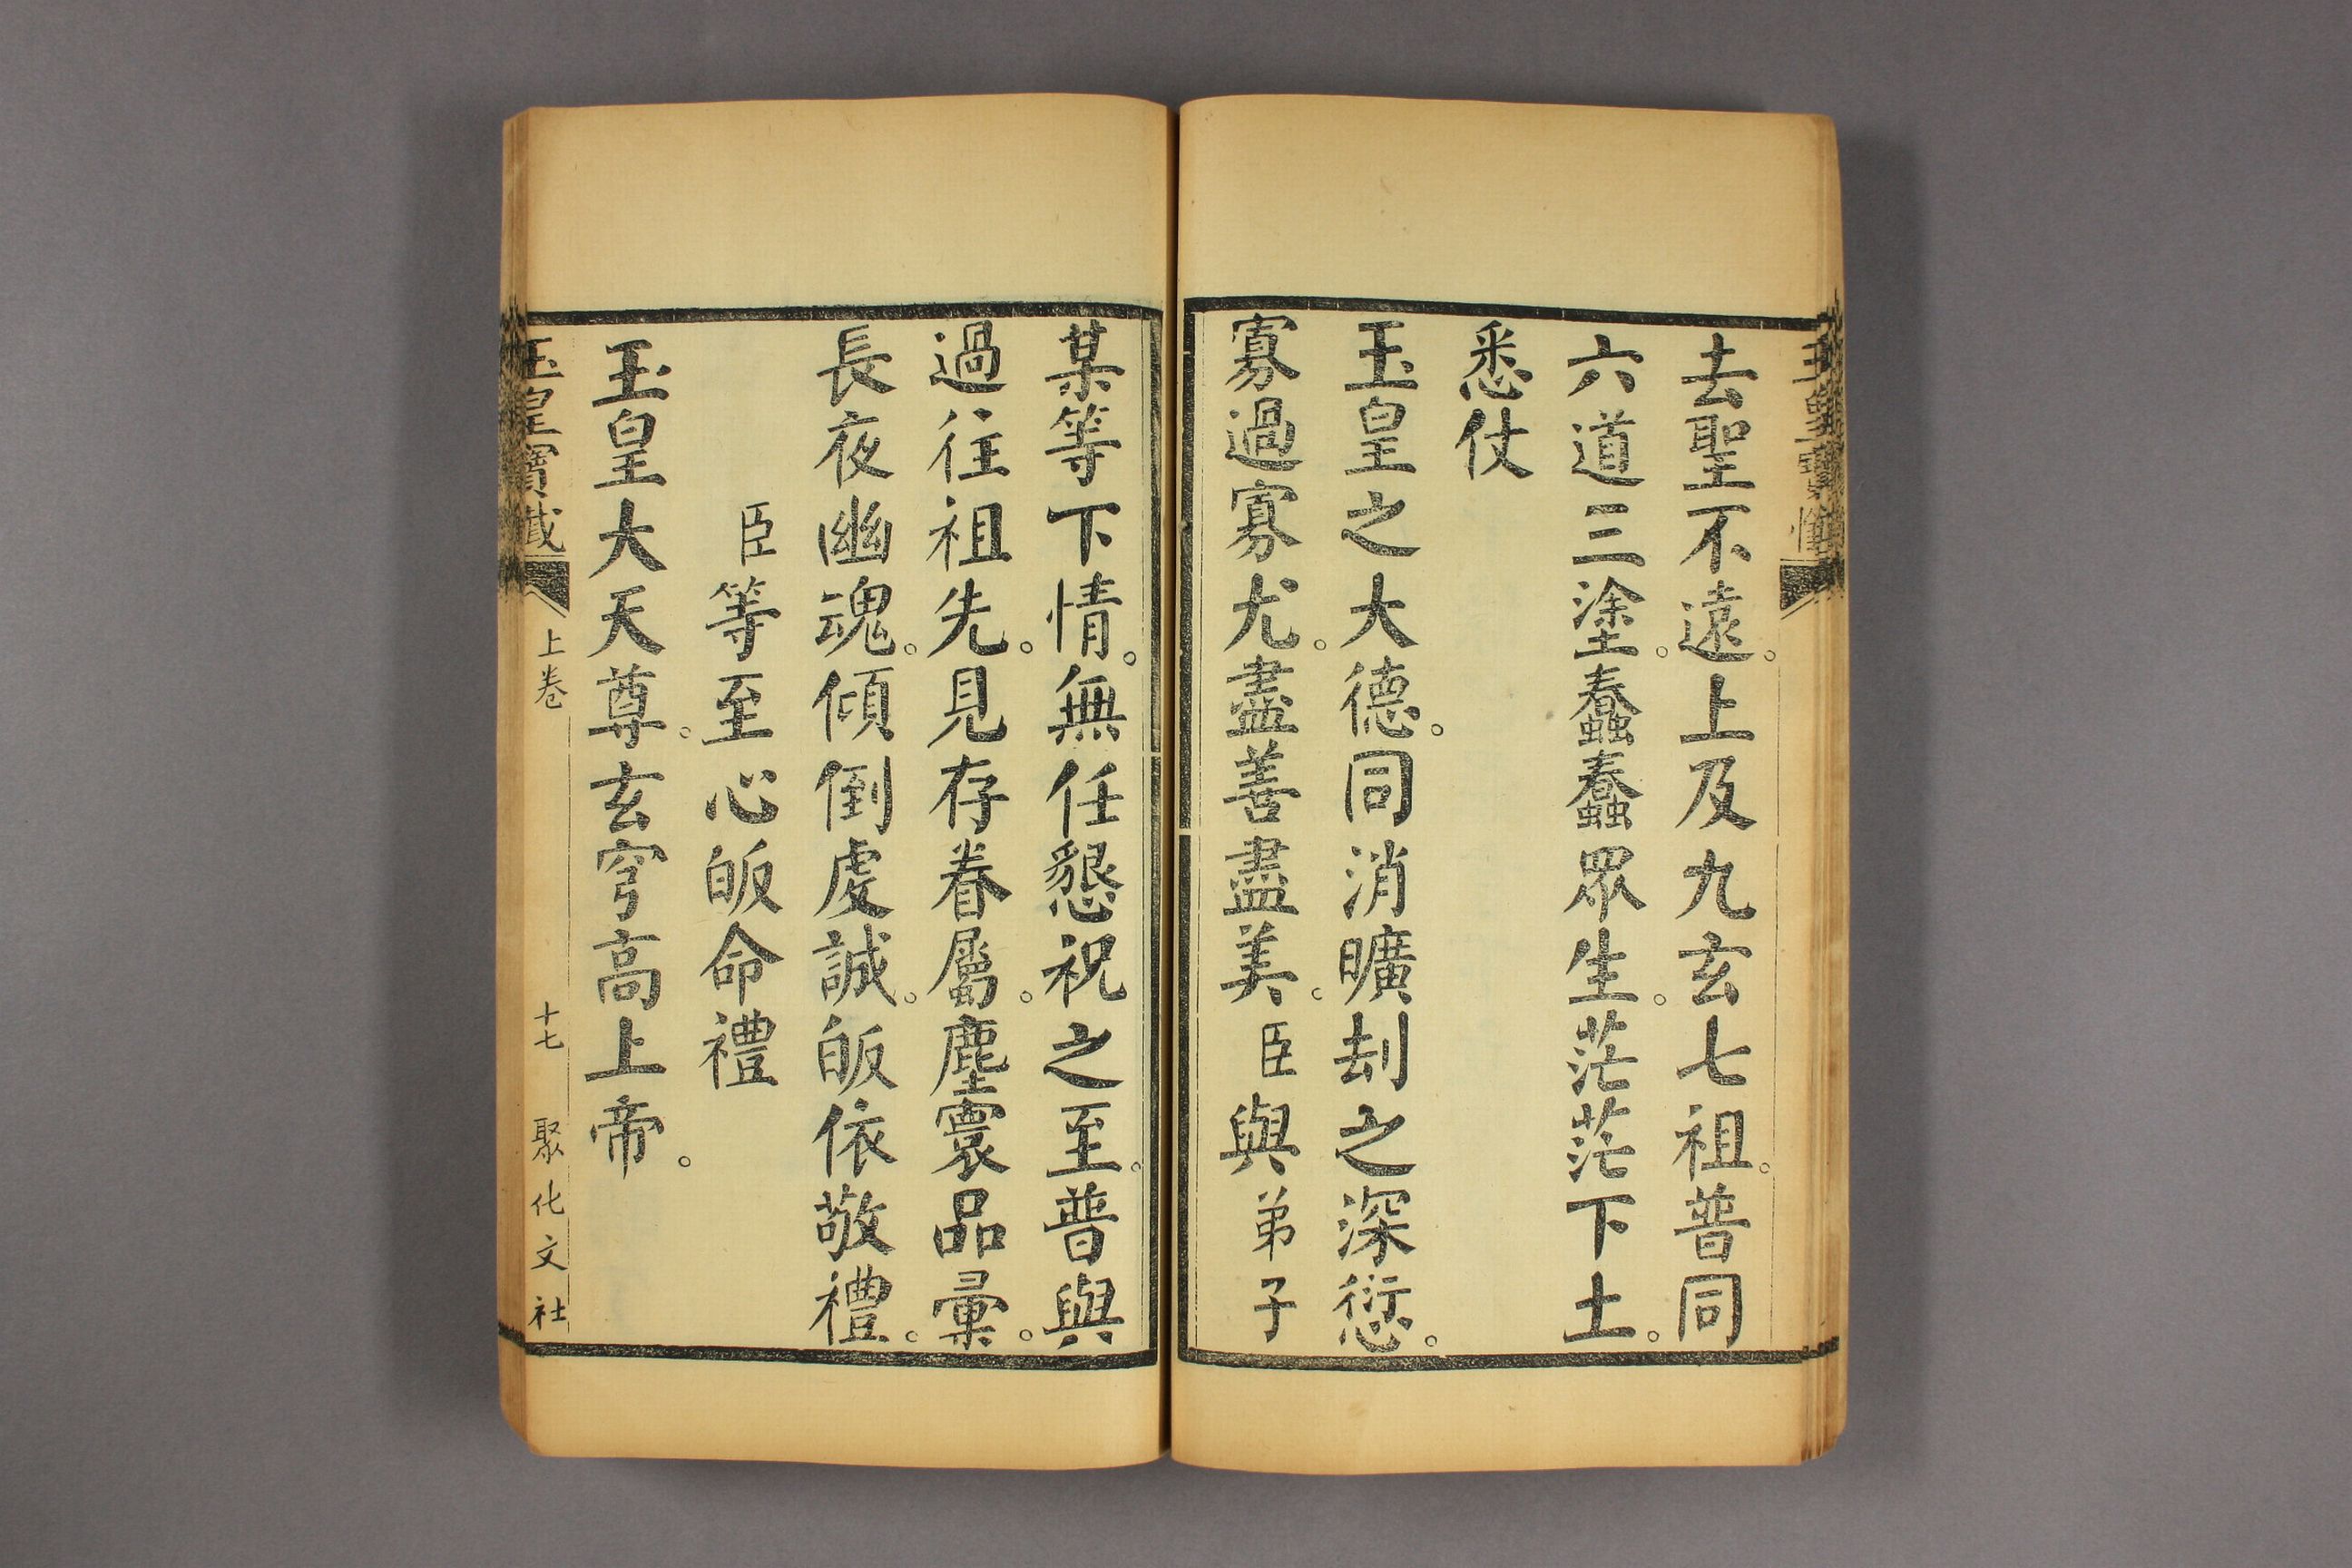 去聖不遠。上及九玄七祖。普同
六道三塗。蠢蠢眾生。茫茫下土。
悉仗
玉皇之大德。同消曠刦之深愆。
寡過寡尤。盡善盡美。臣與弟子
某等下情。無任懇祝之至。普與
過往祖先。見存眷屬。塵寰品彙。
長夜幽魂。傾倒虔誠。皈依敬禮。
臣等至心皈命禮
玉皇大天尊。玄穹高上帝。
玉皇寶懺 上卷 十七 聚化文社